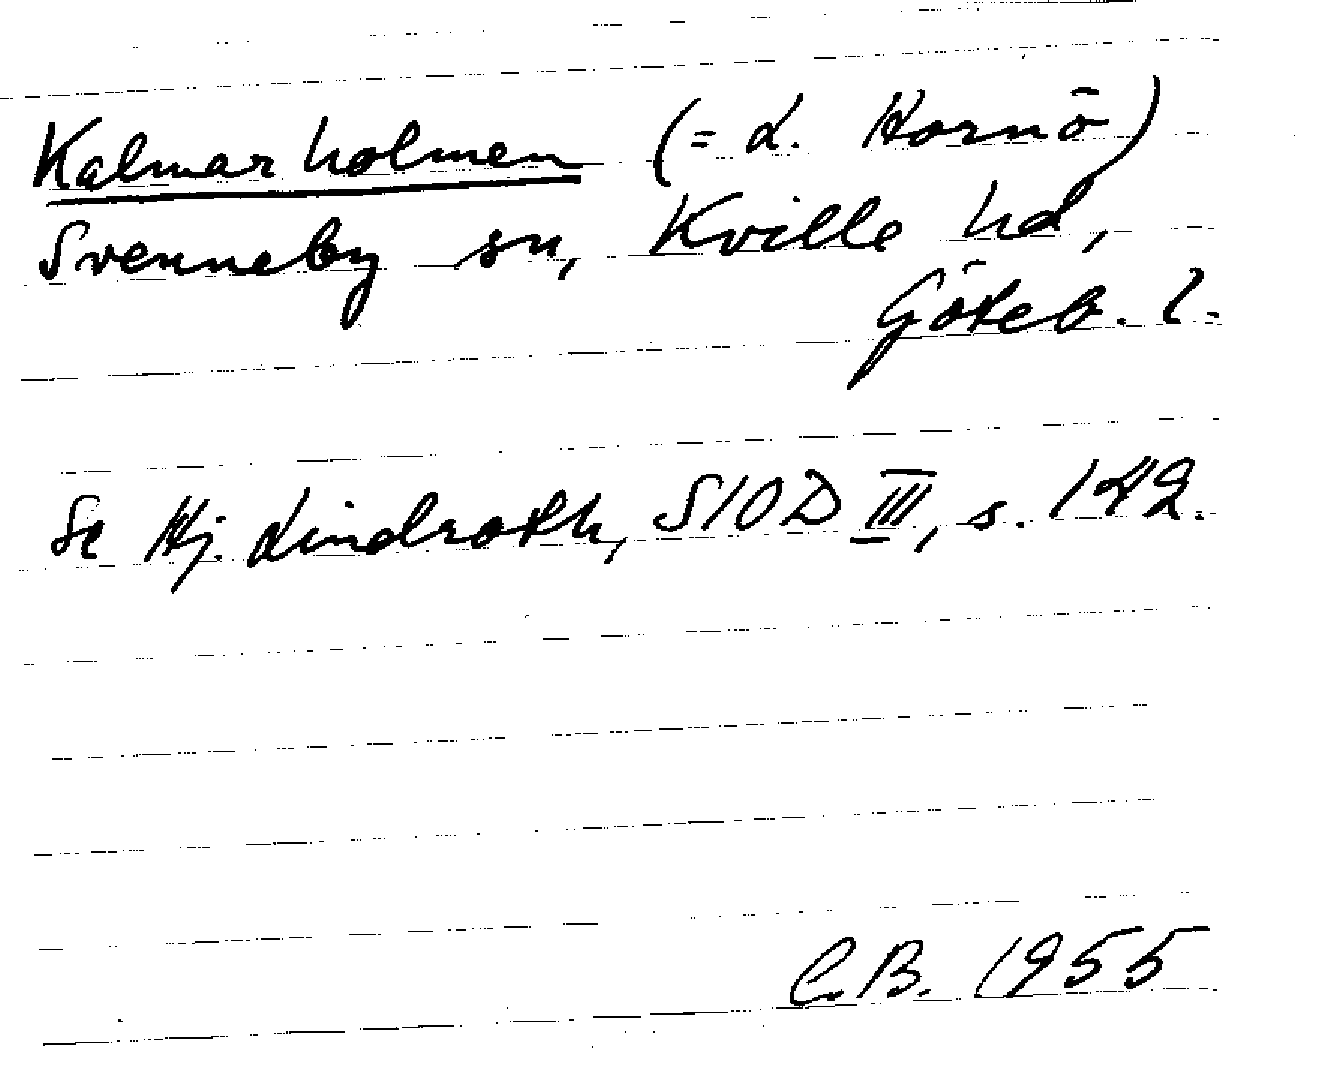 Kalmarholmen (= L. Hornö)
Svenneby sn, Kville hd,
Göteb. l.
Se Hj. Lindroth, SIOD III, s. 142.
C.B. 1955